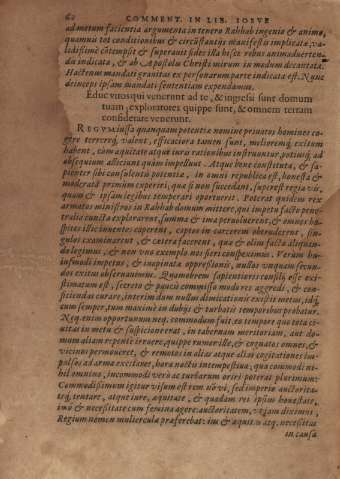 60 COMMENT. IN LIB. IOSVE
ad metum facientia argumenta in tenero Rahhab ingenio & animo,
quamuis tot conditionibus & circūstantijs manifestis implicitæ, va-
lidissimè cōtempsit & superauit sides illa hisce rebus animaduerten-
du indicata, & ab Apostolu Christi mirum in modum decantata.
Hactenus mandati grauitas ex personarum parte indicata est. Nunc
deinceps ipsam mandati sententiam expendamus.
Educ viros qui venerunt ad te, & ingressi sunt domum
tuam, exploratores quippe sunt, & omnem terram
considerare venerunt.
REGVM iussa quanquam potentiæ nomine priuatos homines co-
gere terreriq́; valent, efficaciora tamen sunt, melioremq́; exitum
habent, cum æquitate atque iuris rationibus instruuntur, potiusq́; ad
obsequium alliciunt quàm impellunt. Atque bene constituta, & sa-
pienter sibi consulentis potentiæ, in omni republica est, honesta &
moderata primùm experiri, quæ si non succedant, superest regia vis,
quam & ipsam legibus temperari oportuerit. Poterat quidem rex
armatos ministros in Rahhab domum mittere, qui impetu facto pene-
tralia cuncta explorarent, summa & ima peruoluerent, & omnes ho-
spites illic inuentos caperent, captos in carcerem obtruderent, sin-
gulos examinarent, & cætera facerent, quæ & olim facta aliquan-
do legimus, & non vno exemplo nos fieri conspeximus. Verùm hu-
iusmodi impetus, & inopinatæ oppressionis, auctus vnquam secun-
dos exitus obseruauimus. Quamobrem sapientioris consilij esse exi-
stimatum est, secretò & paucis commissò modo res aggredi, & con-
ficiendas curare, interim dum nullus dimicationis existit metus, idq́;
cum semper, tum maximè in dubijs & turbatis temporibus probatur.
Neq. enim opportunum neq. commodum fuit, eo tempore quo tota ci-
uitas in metu & suspicione erat, in tabernam meritoriam, aut do-
mum aliam repentè irruere, quippe rumor ille, & cognatos omnes, &
vicinos permoueret, & remotos in alias atque alias cogitationes im-
pulsos ad arma excitaret, hora noctis intempestiua, quæ commodi ni-
hil omnino, incommodi verò ac turbarum oriri poterat plurimùm.
Commodissimum igitur visum est rem nō vi, sed imperio auctorita-
teq́; tentare, atque iure, æquitate, & quadam rei ipsius honestate,
imò & necessitate cum femina agere: auctoritatem, vt jam diximus,
Regium nomen mulierculæ præferebat: ius & æquitatē atq. necessitas
in causa